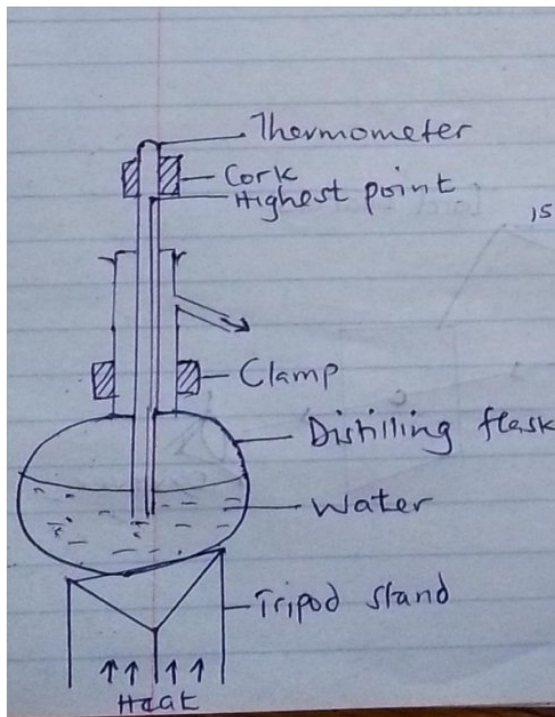 Thermometer
Cork
Highest point
15
Clamp
Distilling flask
Water
Tripod stand
Heat